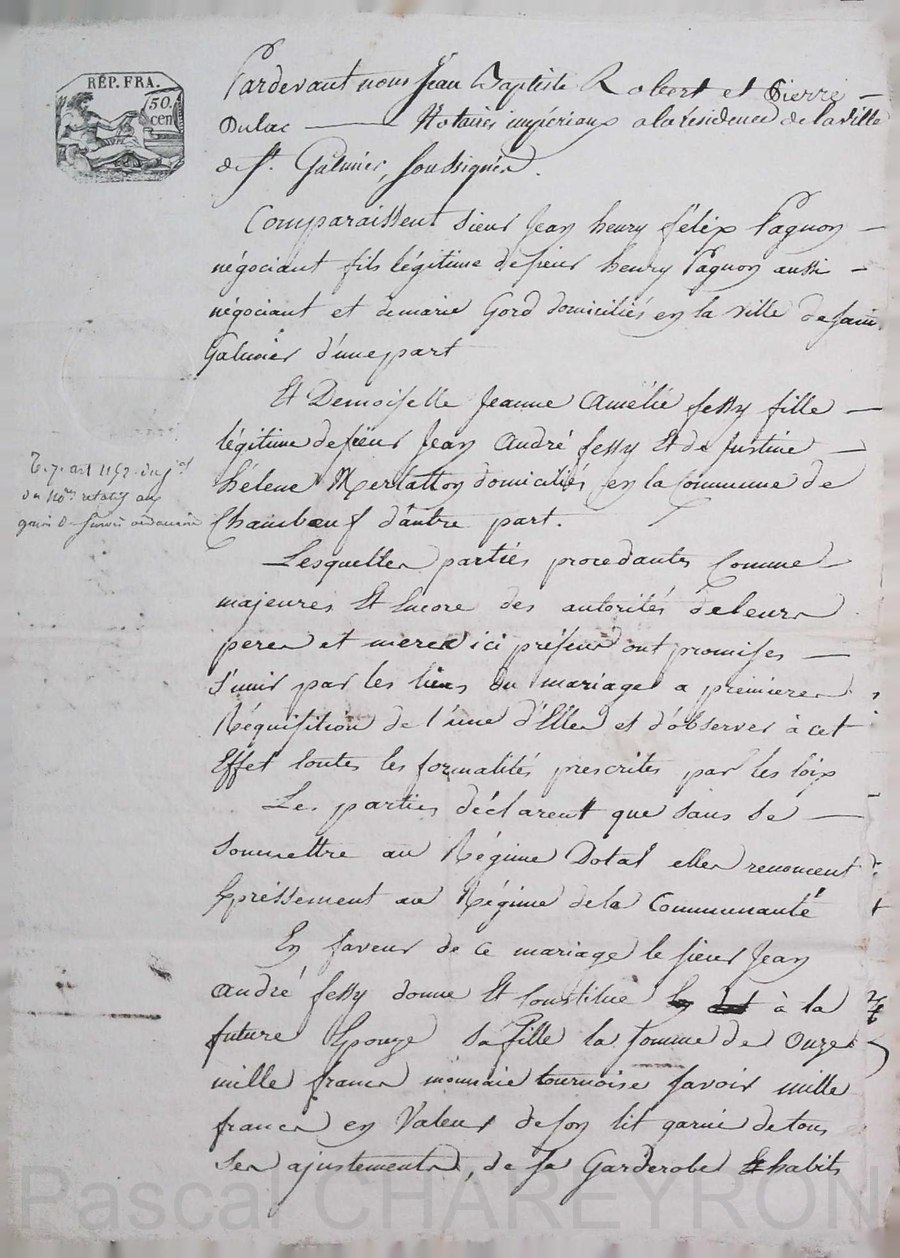 RÉP. FRA.
50.
cen
Pardevant nous Jean Baptiste Robert et Pierre
Dulac ——— Notaires impériaux a la résidence de la ville
de St. Galmier, soussignés.
Comparaissent sieur Jean henry félix Pagnon —
négociant fils légitime de sieur henry Pagnon aussi —
négociant et de marie Gord domiciliés en la ville de saint
Galmier d'une part
Et Demoiselle Jeanne Amélie fessy fille —
légitime de sieur Jean André fessy Et de Justine —
hélene Merlatton domiciliés en la Commune de
Chambœuf d'autre part.
art 1152 du
du relatif aux
de survie
Lesquelles parties procedantes Comme —
majeures Et Encore des autorités de leurs
peres et meres ici présens ont promises —
s'unir par les liens du mariage a premiere
Réquisition de l'une d'Elles et d'observer à cet
Effet toutes les formalités prescrites par les loix
Les parties déclarent que sans se —
soumettre au Régime Dotal elles renoncent
Expressement au Régime de la Communauté
En faveur de ce mariage le sieur Jean
André fessy donne Et Constitue à la
future Epouze sa fille la somme de Onze
mille francs monnaie tournoise savoir mille
francs en Valeur de son lit garni de tous
ses ajustements, de sa Garderobe Et habits
Pascal CHAREYRON